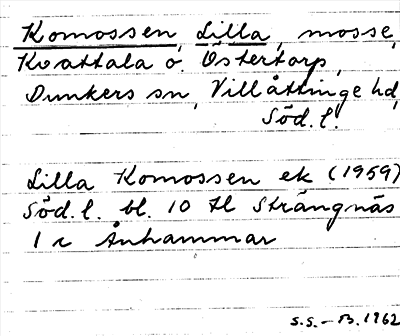 Komossen, Lilla, mosse,
Kvattala o. Östertorp,
Dunkers sn, Villåttinge hd,
Söd. l.
Lilla Komossen ek (1959)
Söd. l. bl. 10 tl Strängnäs
1 r Ånhammar
S.S. – B. 1962